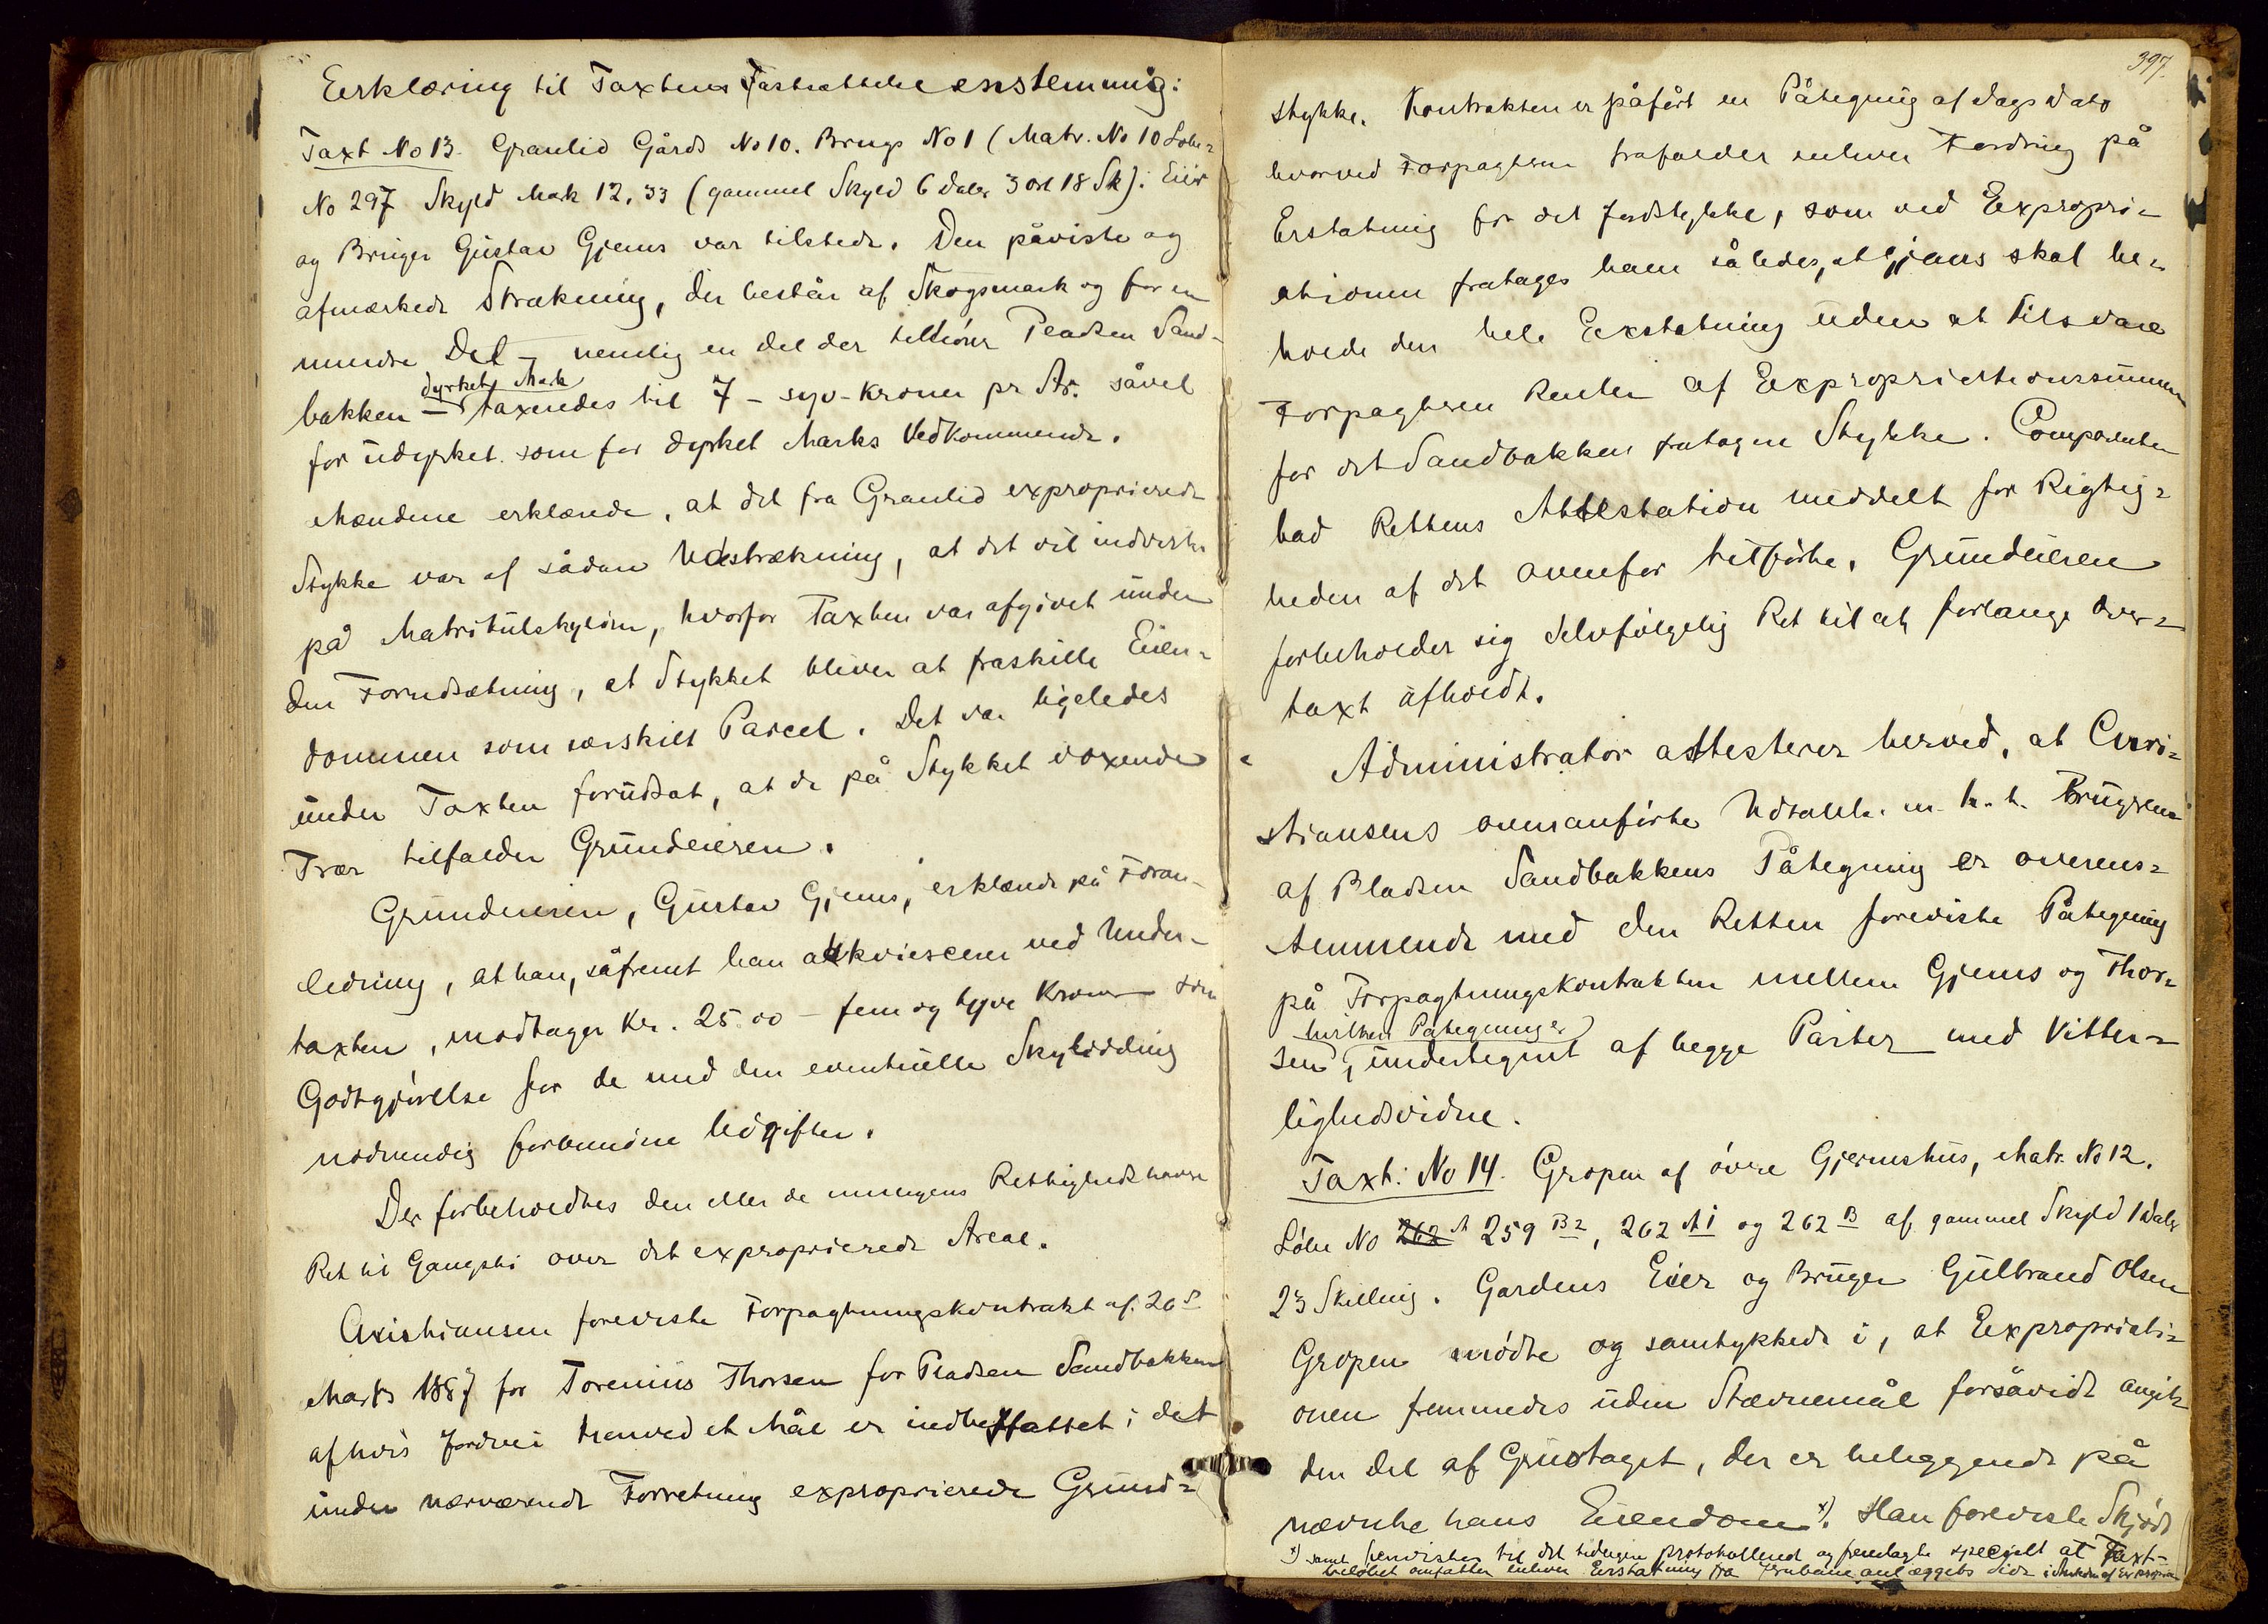 Erklæring til Taxtens Fastsættelse enstemmig:
Taxt No 13. Granlid Gårds No 10. Brugs No 1 (Matr. No 10 Løbe=
No 297 Skyld Mark 12,33 (gammel Skyld 6 daler 3 ort 18 Sk). Eier
og Bruger Gustav Gjems var tilstede. Den påviste og
afmærkede Strækning, der består af Skogsmark og for en
mindre Del - nemlig en del der tilhører Pladsen Sand-
bakken - dyrket Mark taxeredes til 7 - syv - Kroner pr Ar. såvel
for udyrket som for dyrket Marks Vedkommende.
Mændene erklærede, at det fra Granlid exproprierede
Stykke var af sådan Udstrækning, at det vil indvirke
på Matrikulskylden, hvorfor Taxten var afgivet under
den Forudsætning, at Stykket bliver at fraskille Eien=
dommen som særskilt Parcel. Det var ligeledes
under Taxten forudsat, at de på Stykket voxende
Trær tilfalder Grundeieren.
Grundeieren, Gustav Gjems, erklærede på Foran-
ledning, at han, såfremt han akkviescerer ved Under-
taxten, modtager Kr. 25.00 - fem og tyve Kroner som
Godtgjørelse for de med den eventuelle Skylddeling
nødvendig forbundne Udgifter.
Der forbeholdtes den eller de mulgens Rettighedshavere
Ret til Gangsti over det exproprierede Areal.
Christiansen foreviste Forpagtningskontrakt af 26de
Marts 1887 for Torenius Thorsen for Pladsen Sandbakken
af hvis Jordvei henved et Mål er indbefattet i det
under nærværende Forretning exproprierede Grund=
397.
stykke. Kontrakten er påført en Påtegning af dags dato
hvorved Forpagteren frafalder enhver Fordring på
Erstatning for det Jordstykke, som ved Expropri=
ationen fratages ham således, at Gjems skal be=
holde den hele Erstatning uden at tilsvare
Forpagteren Renter af Expropriationssummen
for det Sandbakken fratagne Stykke. Comparenten
bad Rettens Attestation meddelt for Rigtig=
heden af det ovenfor tilførte. Grundeieren
forbeholder sig selvfølgelig Ret til at forlange Over=
taxt afholdt.
Administrator attesterer herved, at Chri=
stiansens ovenanførte Udtalelse m. h. t. Brugeren
af Pladsen Sandbakkens Påtegning er overens=
stemmende med den Retten foreviste Påtegning
på Forpagtningskontrakten mellem Gjems og Thor=
sen, hvilken Påtegning er undertegnet af begge Parter med Vitter=
lighedsvidne.
Taxt: No 14. Gropen af øvre Gjemshus, Matr. No 12.
Løbe No 262 A 259 B2, 262 A1 og 262 B af gammel Skyld 1 daler
23 Skilling. Gardens Eier og Bruger Gulbrand Olsen
Gropen mødte og samtykkede i, at Expropriati=
onen fremmedes uden Stævnemål forsåvidt angik
den del af Grustaget, der er beliggende på
nævnte hans Eiendom x). Han foreviste Skjøde
x) samt henvistes til det tidligere protokollerede og fremlagte specielt at Taxt-
beløbet omfatter enhver Erstatning fra Jernbaneanlæggets Side i Anledn. af Expropria